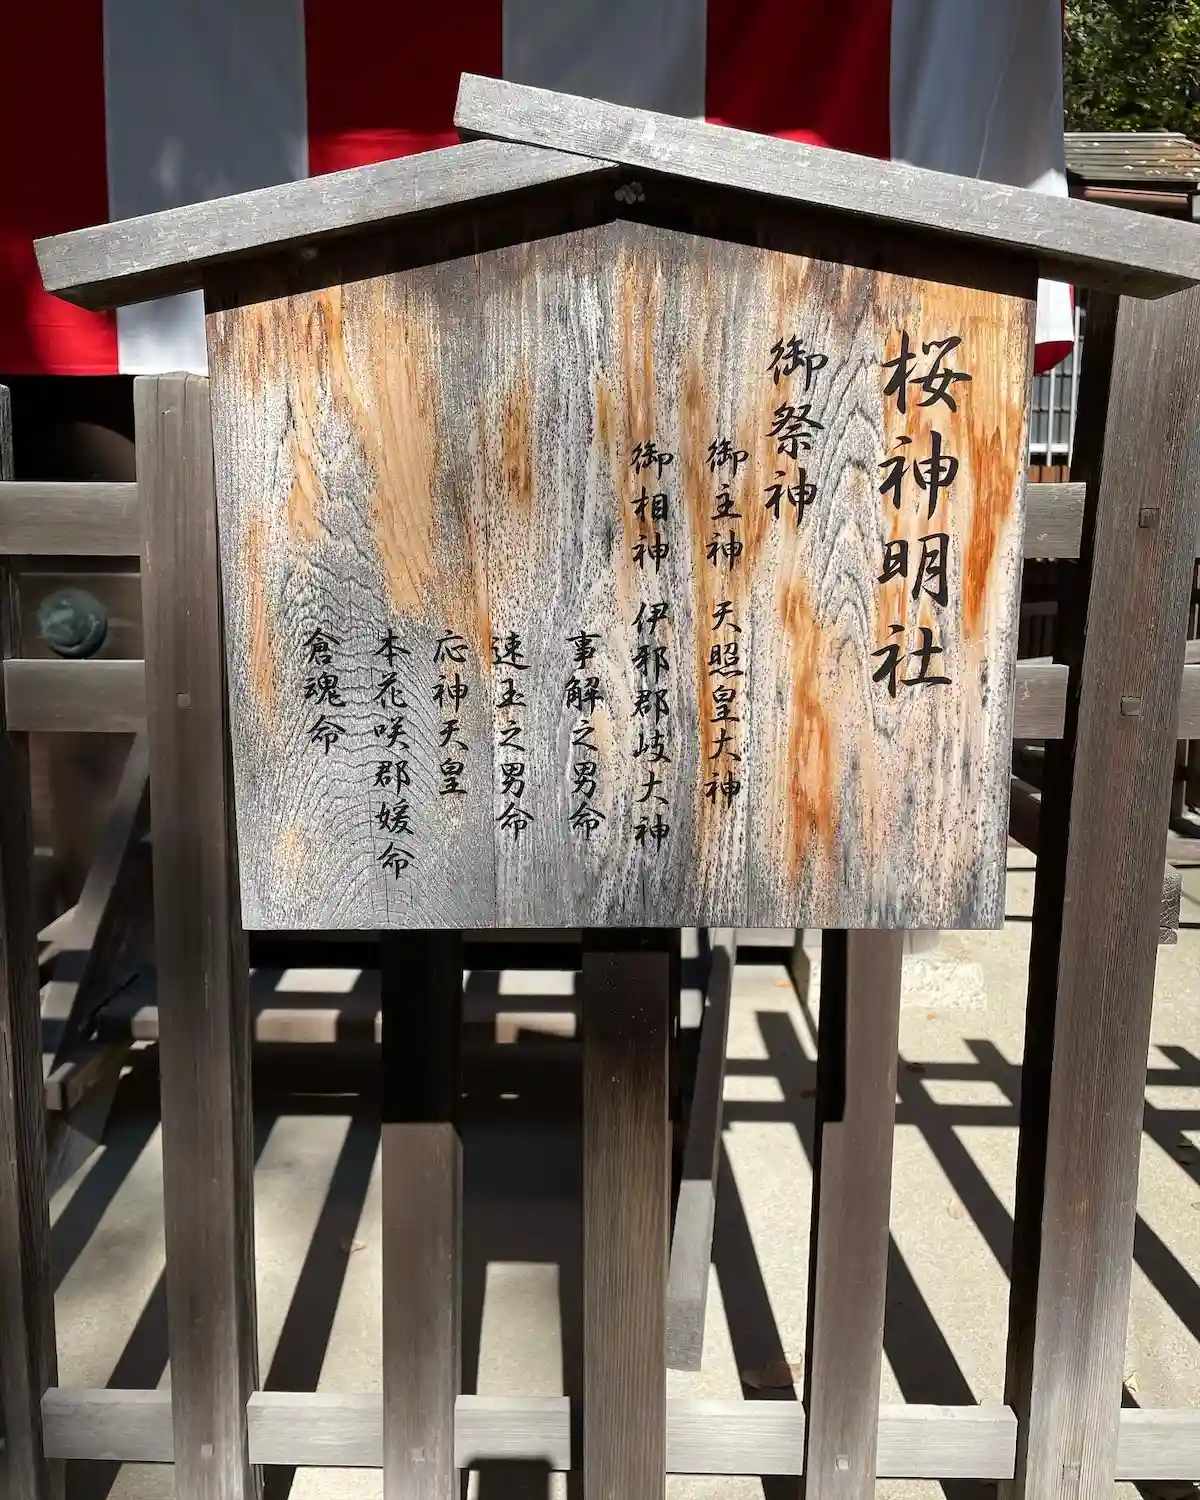 桜神明社
御祭神
御主神 天照皇大神
御相神 伊邪那岐大神
事解之男命
速玉之男命
応神天皇
木花咲那媛命
倉魂命